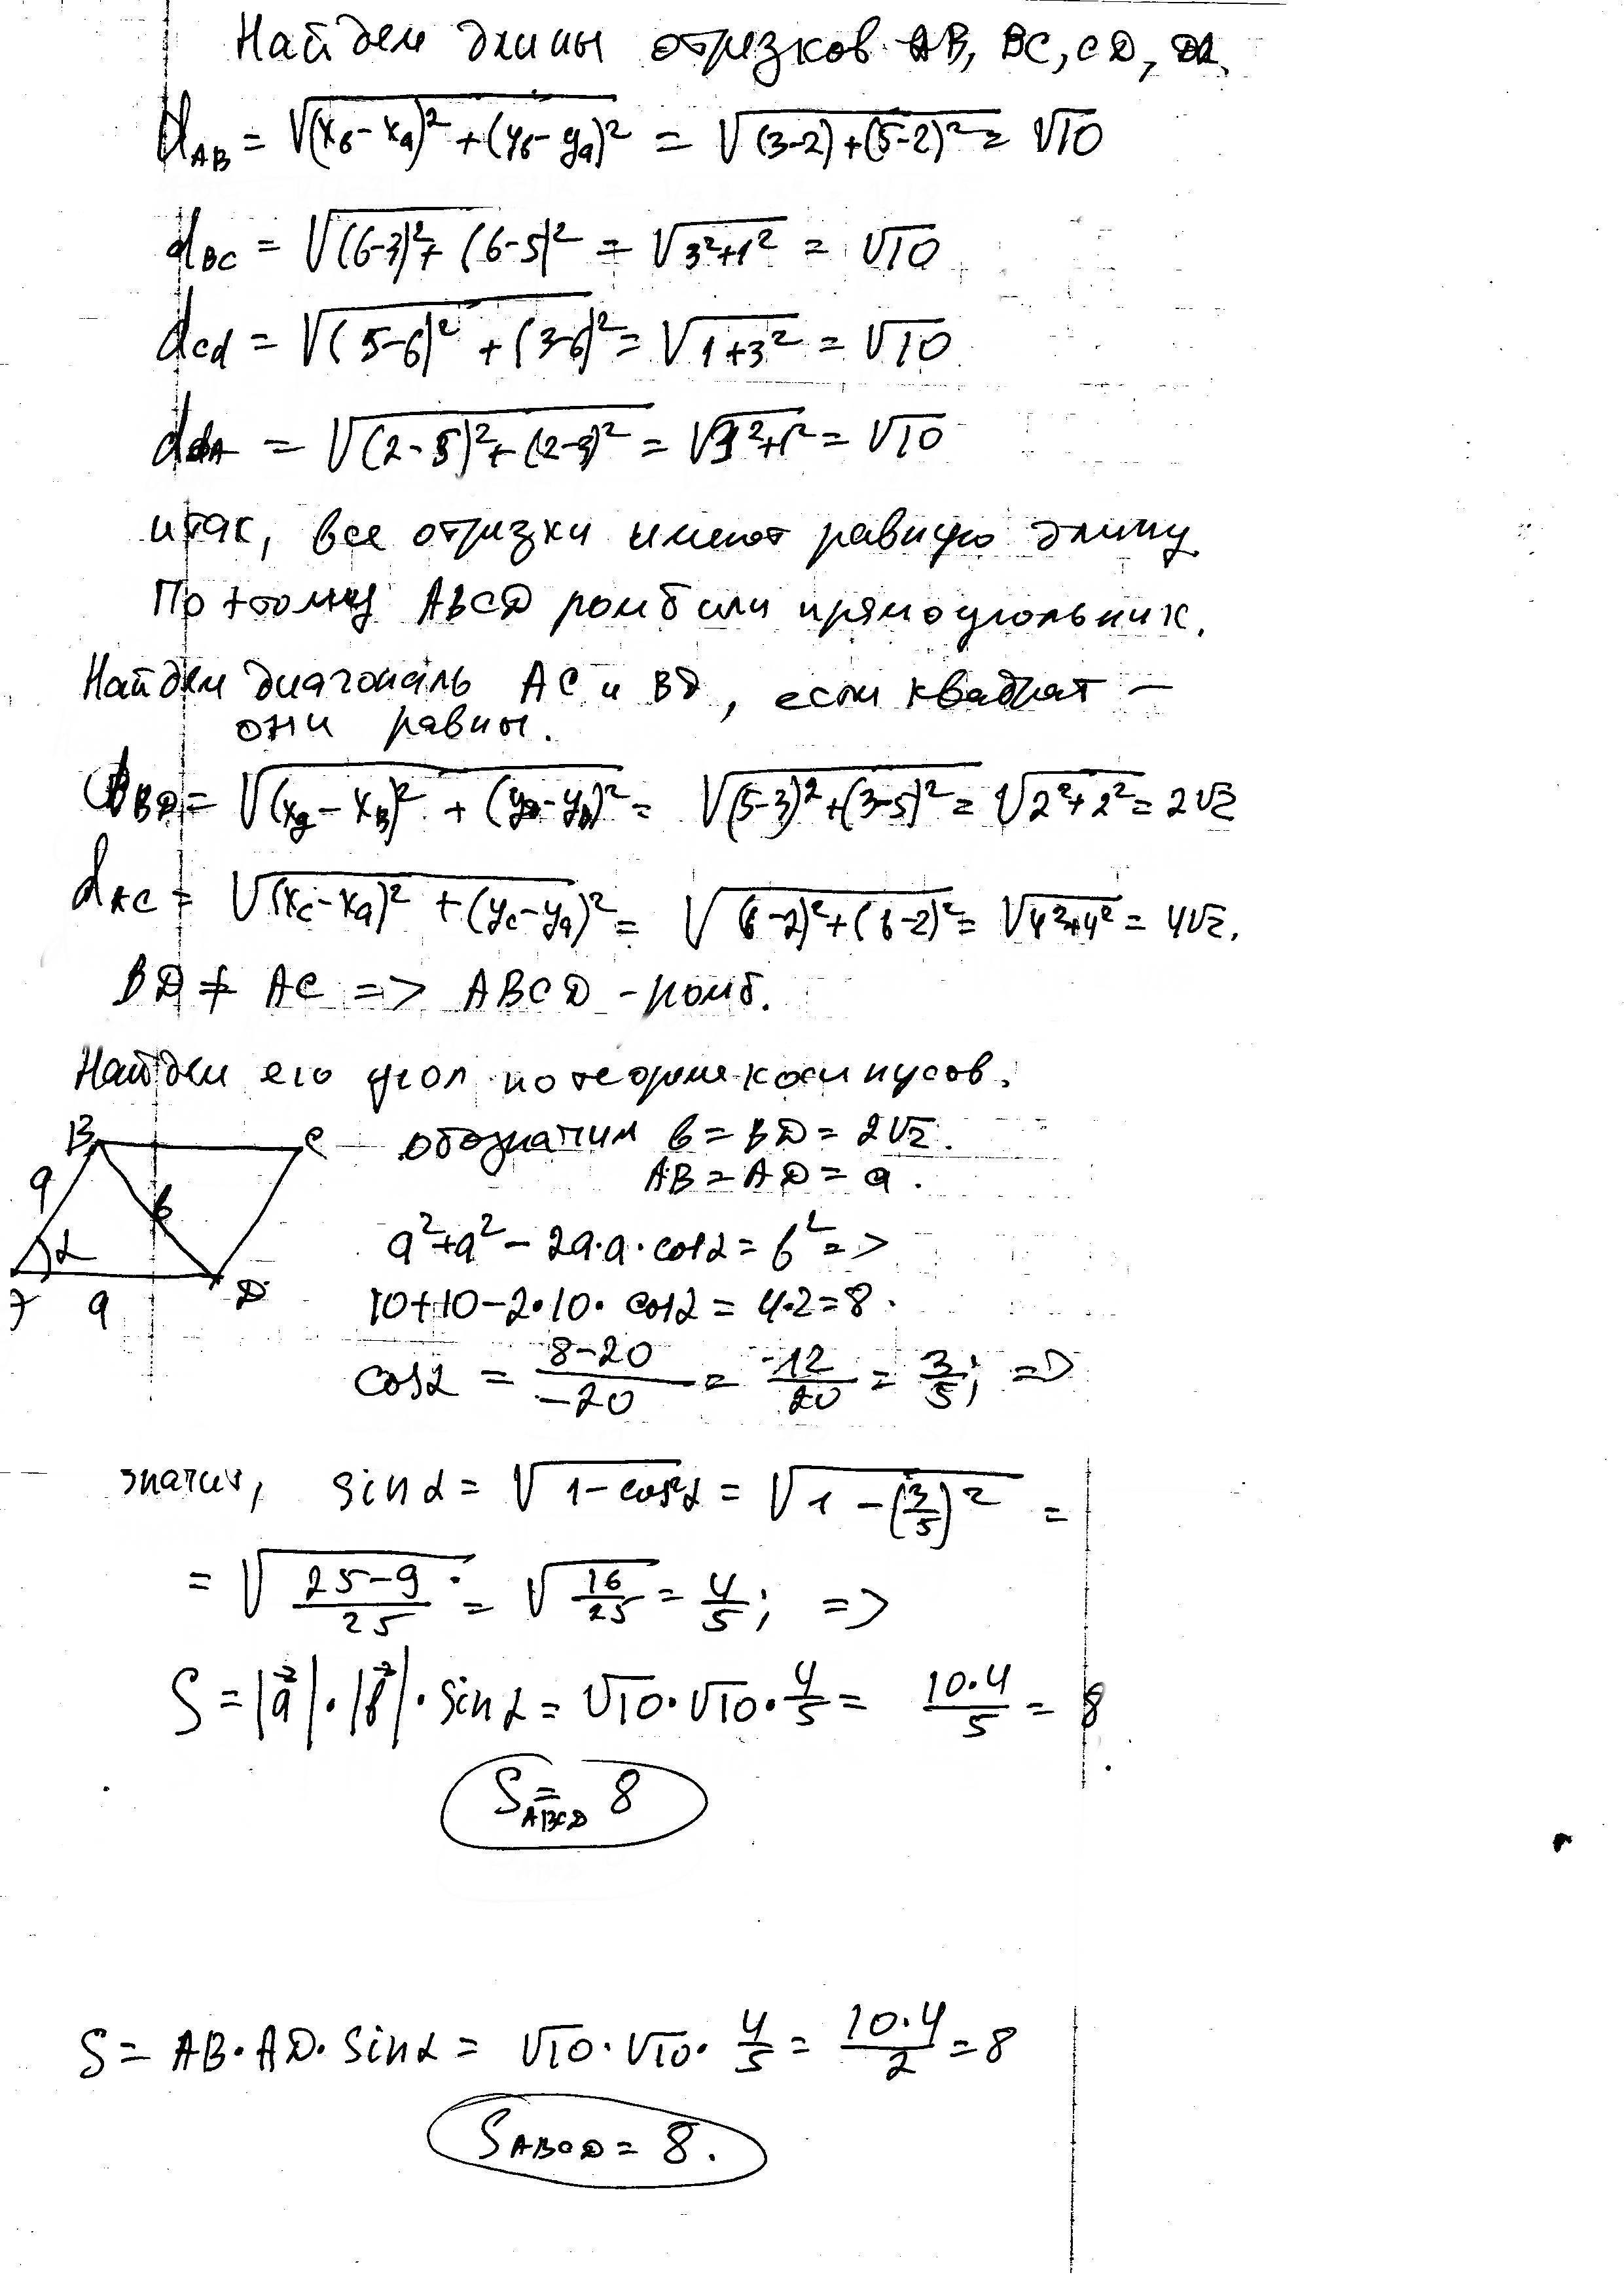 Найдем длины отрезков AB, BC, CD, DA.
d_AB = √((x_б - x_a)² + (y_б - y_a)²) = √((3-2)+(5-2)²) = √10
d_BC = √((6-3)² + (6-5)²) = √(3²+1²) = √10
d_cd = √((5-6)² + (3-6)²) = √(1+3²) = √10
d_dA = √((2-5)² + (2-3)²) = √(3²+1²) = √10
итак, все отрезки имеют равную длину
Поэтому ABCD ромб или прямоугольник.
Найдем диагональ AC и BD, если квадрат —
они равны.
d_BD = √((x_д - x_B)² + (y_D - y_b)²) = √((5-3)²+(3-5)²) = √(2²+2²) = 2√2
d_AC = √((x_c - x_a)² + (y_c - y_a)²) = √((6-2)²+(6-2)²) = √(4²+4²) = 4√2.
BD ≠ AC => ABCD - ромб.
Найдем его угол по теореме косинусов.
B C обозначим b = BD = 2√2.
AB = AD = a.
a b
a² + a² - 2a·a·cosα = b² =>
α
D
a 10+10-2·10·cosα = 4·2=8.
cosα = (8-20)/(-20) = -12/20 = 3/5; =>
значит, sinα = √(1-cos²α) = √(1-(3/5)²) =
= √((25-9)/25) = √(16/25) = 4/5; =>
S = |a⃗|·|b⃗|·sinα = √10·√10·4/5 = (10·4)/5 = 8
S_ABCD = 8
S = AB·AD·sinα = √10·√10·4/5 = (10·4)/2 = 8
S_ABCD = 8.